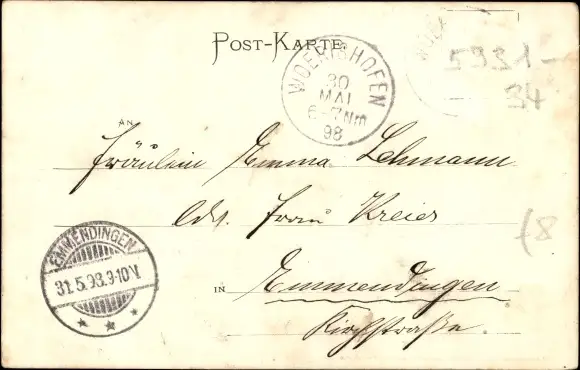 POST-KARTE.
WOERISHOFEN
30
MAI
6-7Nm
98
5931-
34
AN
Fräulein Emma Lehmann
Frau Kreier
(8
EMMENDINGEN
31.5.98.9-10V.
IN Emmendingen
Kirchstraße.